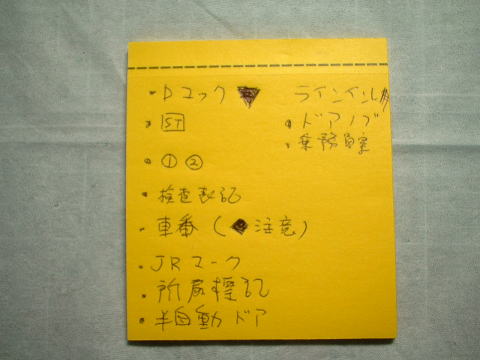 ・Dコック
・ST
・① ②
・検査表記
・車番（ 注意）
・JRマーク
・所属標記
・半自動ドア
ラインイン
・ドアノブ
・乗務員室